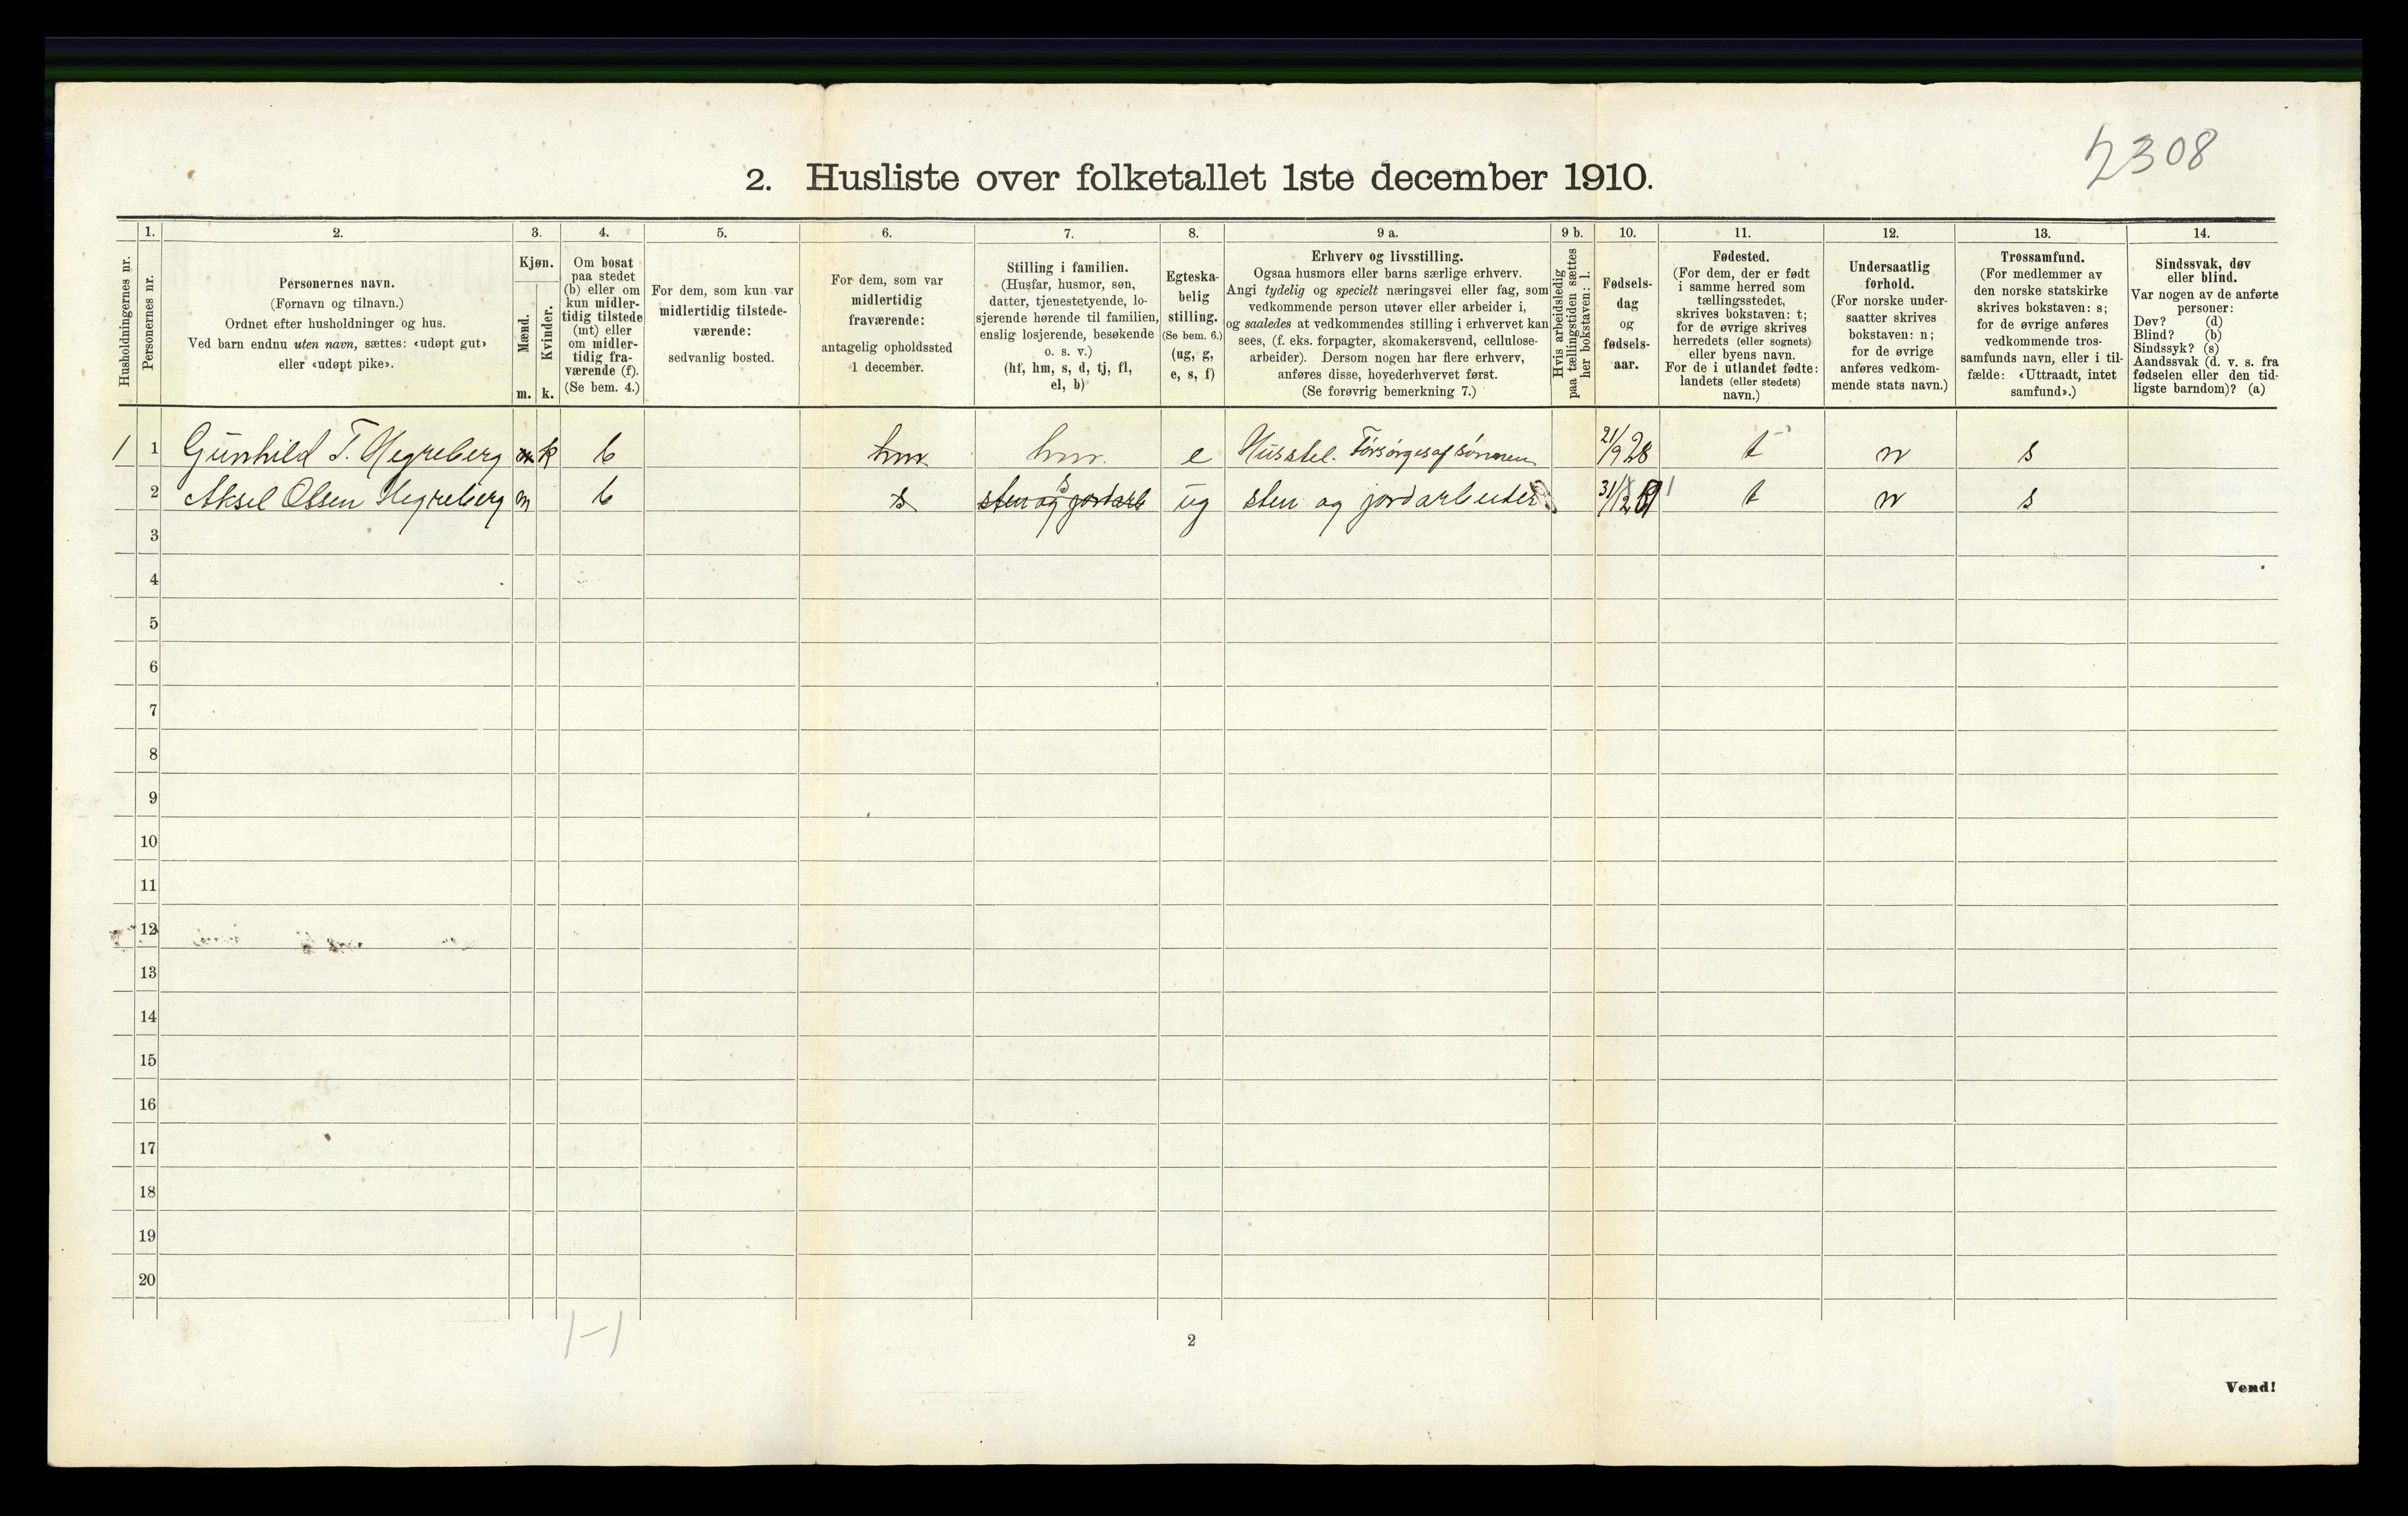 2308
2. Husliste over folketallet 1ste december 1910.
Husholdningernes nr.
1.
Personernes nr.
2.
Personernes navn.
(Fornavn og tilnavn.)
Ordnet efter husholdninger og hus.
Ved barn endnu uten navn, sættes: «udøpt gut»
eller «udøpt pike».
3.
Kjøn.
Mænd.
Kvinder.
m. k.
4.
Om bosat
paa stedet
(b) eller om
kun midler-
tidig tilstede
(mt) eller
om midler-
tidig fra-
værende (f).
(Se bem. 4.)
5.
For dem, som kun var
midlertidig tilstede-
værende:
sedvanlig bosted.
6.
For dem, som var
midlertidig
fraværende:
antagelig opholdssted
1 december.
7.
Stilling i familien.
(Husfar, husmor, søn,
datter, tjenestetyende, lo-
sjerende hørende til familien,
enslig losjerende, besøkende
o. s. v.)
(hf, hm, s, d, tj, fl,
el, b)
8.
Egteska-
belig
stilling.
(Se bem. 6.)
(ug, g,
e, s, f)
9 a.
Erhverv og livsstilling.
Ogsaa husmors eller barns særlige erhverv.
Angi tydelig og specielt næringsvei eller fag, som
vedkommende person utøver eller arbeider i,
og saaledes at vedkommendes stilling i erhvervet kan
sees, (f. eks. forpagter, skomakersvend, cellulose-
arbeider). Dersom nogen har flere erhverv,
anføres disse, hovederhvervet først.
(Se forøvrig bemerkning 7.)
9 b.
Hvis arbeidsledig
paa tællingstiden sættes
her bokstaven: l.
10.
Fødsels-
dag
og
fødsels-
aar.
11.
Fødested.
(For dem, der er født
i samme herred som
tællingsstedet,
skrives bokstaven: t;
for de øvrige skrives
herredets (eller sognets)
eller byens navn.
For de i utlandet fødte:
landets (eller stedets)
navn.)
12.
Undersaatlig
forhold.
(For norske under-
saatter skrives
bokstaven: n;
for de øvrige
anføres vedkom-
mende stats navn.)
13.
Trossamfund.
(For medlemmer av
den norske statskirke
skrives bokstaven: s;
for de øvrige anføres
vedkommende tros-
samfunds navn, eller i til-
fælde: «Uttraadt, intet
samfund».)
14.
Sindssvak, døv
eller blind.
Var nogen av de anførte
personer:
Døv? (d)
Blind? (b)
Sindssyk? (s)
Aandssvak (d. v. s. fra
fødselen eller den tid-
ligste barndom)? (a)
1 1 Gunhild T. Hegreberg m k b hm hm. e Husstel. Forsørges af sønnen 21/9 28 t n s
2 Aksel Olsen Hegreberg m b s sten og jordarb s ug sten og jordarbeider t n s
3
4
5
6
7
8
9
10
11
12
13
14
15
16
17
18
19
20
1-1
2
Vend!